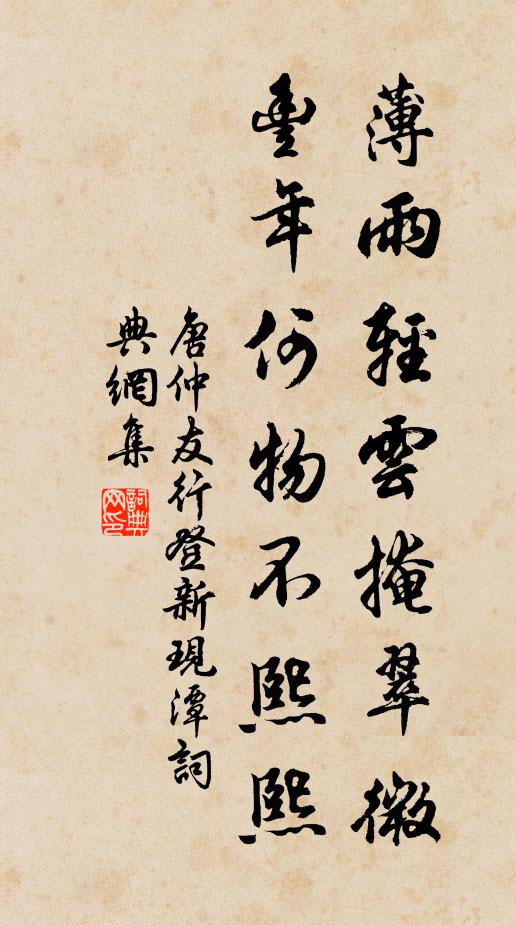 薄雨輕雲掩翠微
豐年何物不熙熙
唐仲友行登新現潭詞
典網集
詞典
网印